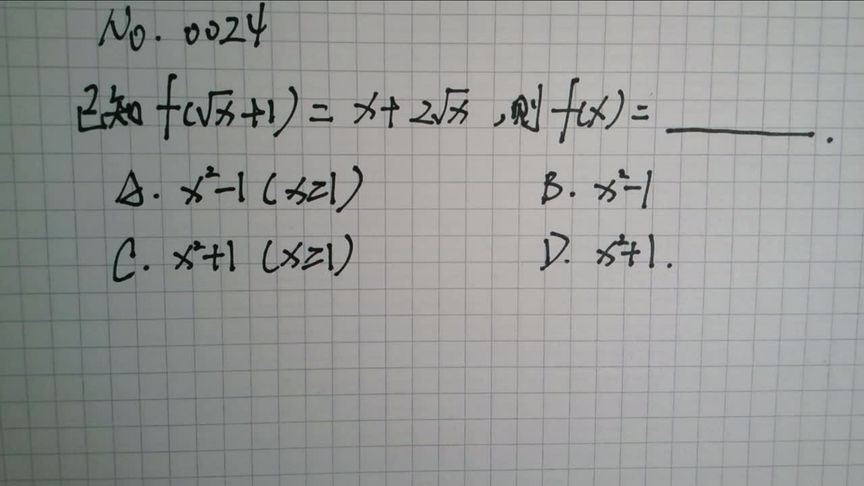 No. 0024
已知 f(√x+1) = x+2√x ,则 f(x) = ________.
A. x²-1 (x≥1) B. x²-1
C. x²+1 (x≥1) D. x²+1.